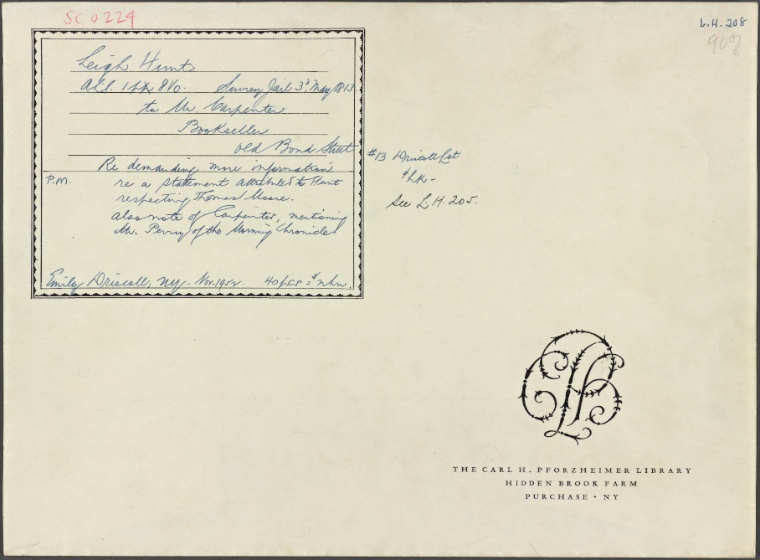 SC 0224
L.H. 208
Leigh Hunt
ALS. 1 p. 8vo. Surrey Jail 3d May 1813
to Mr. Carpenter
Bookseller
Old Bond Street
P.M.
Re demanding more information
re a statement attributed to Hunt
respecting Thomas Moore.
Also note of Carpenter, mentioning
Mr. Perry of the Morning Chronicle
Emily Driscoll, NY - Nov. 1952
#13 Driscoll Lot
See L.H. 205.
THE CARL H. PFORZHEIMER LIBRARY
HIDDEN BROOK FARM
PURCHASE • NY